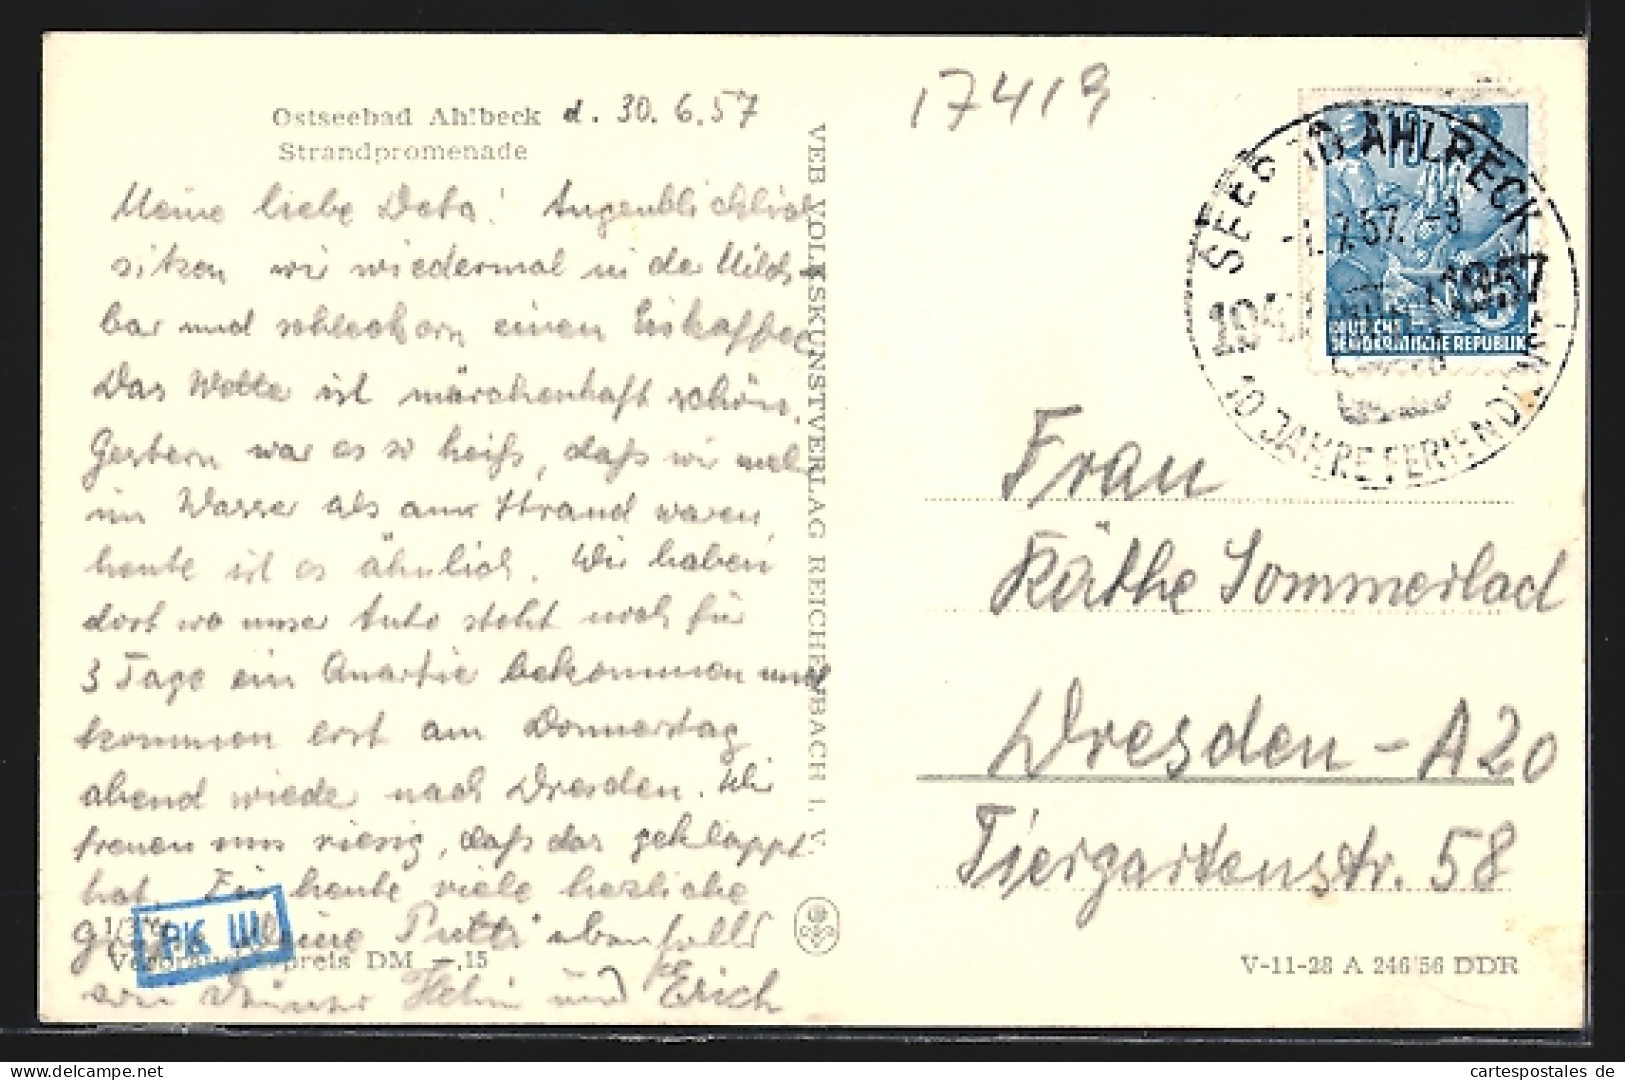 Ostseebad Ahlbeck d. 30.6.57
Strandpromenade
Meine liebe Deta! Augenblicklich
sitzen wir wiedermal in der Milch-
bar und schleckern einen Eiskaffee.
Das Wetter ist märchenhaft schön.
Gestern war es so heiß, daß wir mehr
im Wasser als am Strand waren,
heute ist es ähnlich. Wir haben
dort wo unser Auto steht noch für
3 Tage ein Quartier bekommen und
kommen erst am Donnerstag
abend wieder nach Dresden. Wir
freuen uns riesig, daß das geklappt
hat. Für heute viele herzliche
Putti ebenfalls
von Helm und Erich
PK III
Verbraucherpreis DM -,15
VEB VOLKSKUNSTVERLAG REICHENBACH I. V.
17419
SEEBAD AHLBECK
-1.7.57.-8
1947 1957
10 JAHRE FERIENDIENST
10
DEUTSCHE
DEMOKRATISCHE REPUBLIK
Frau
Käthe Sommerlad
Dresden-A20
Tiergartenstr. 58
V-11-28 A 246/56 DDR
cartespostales de